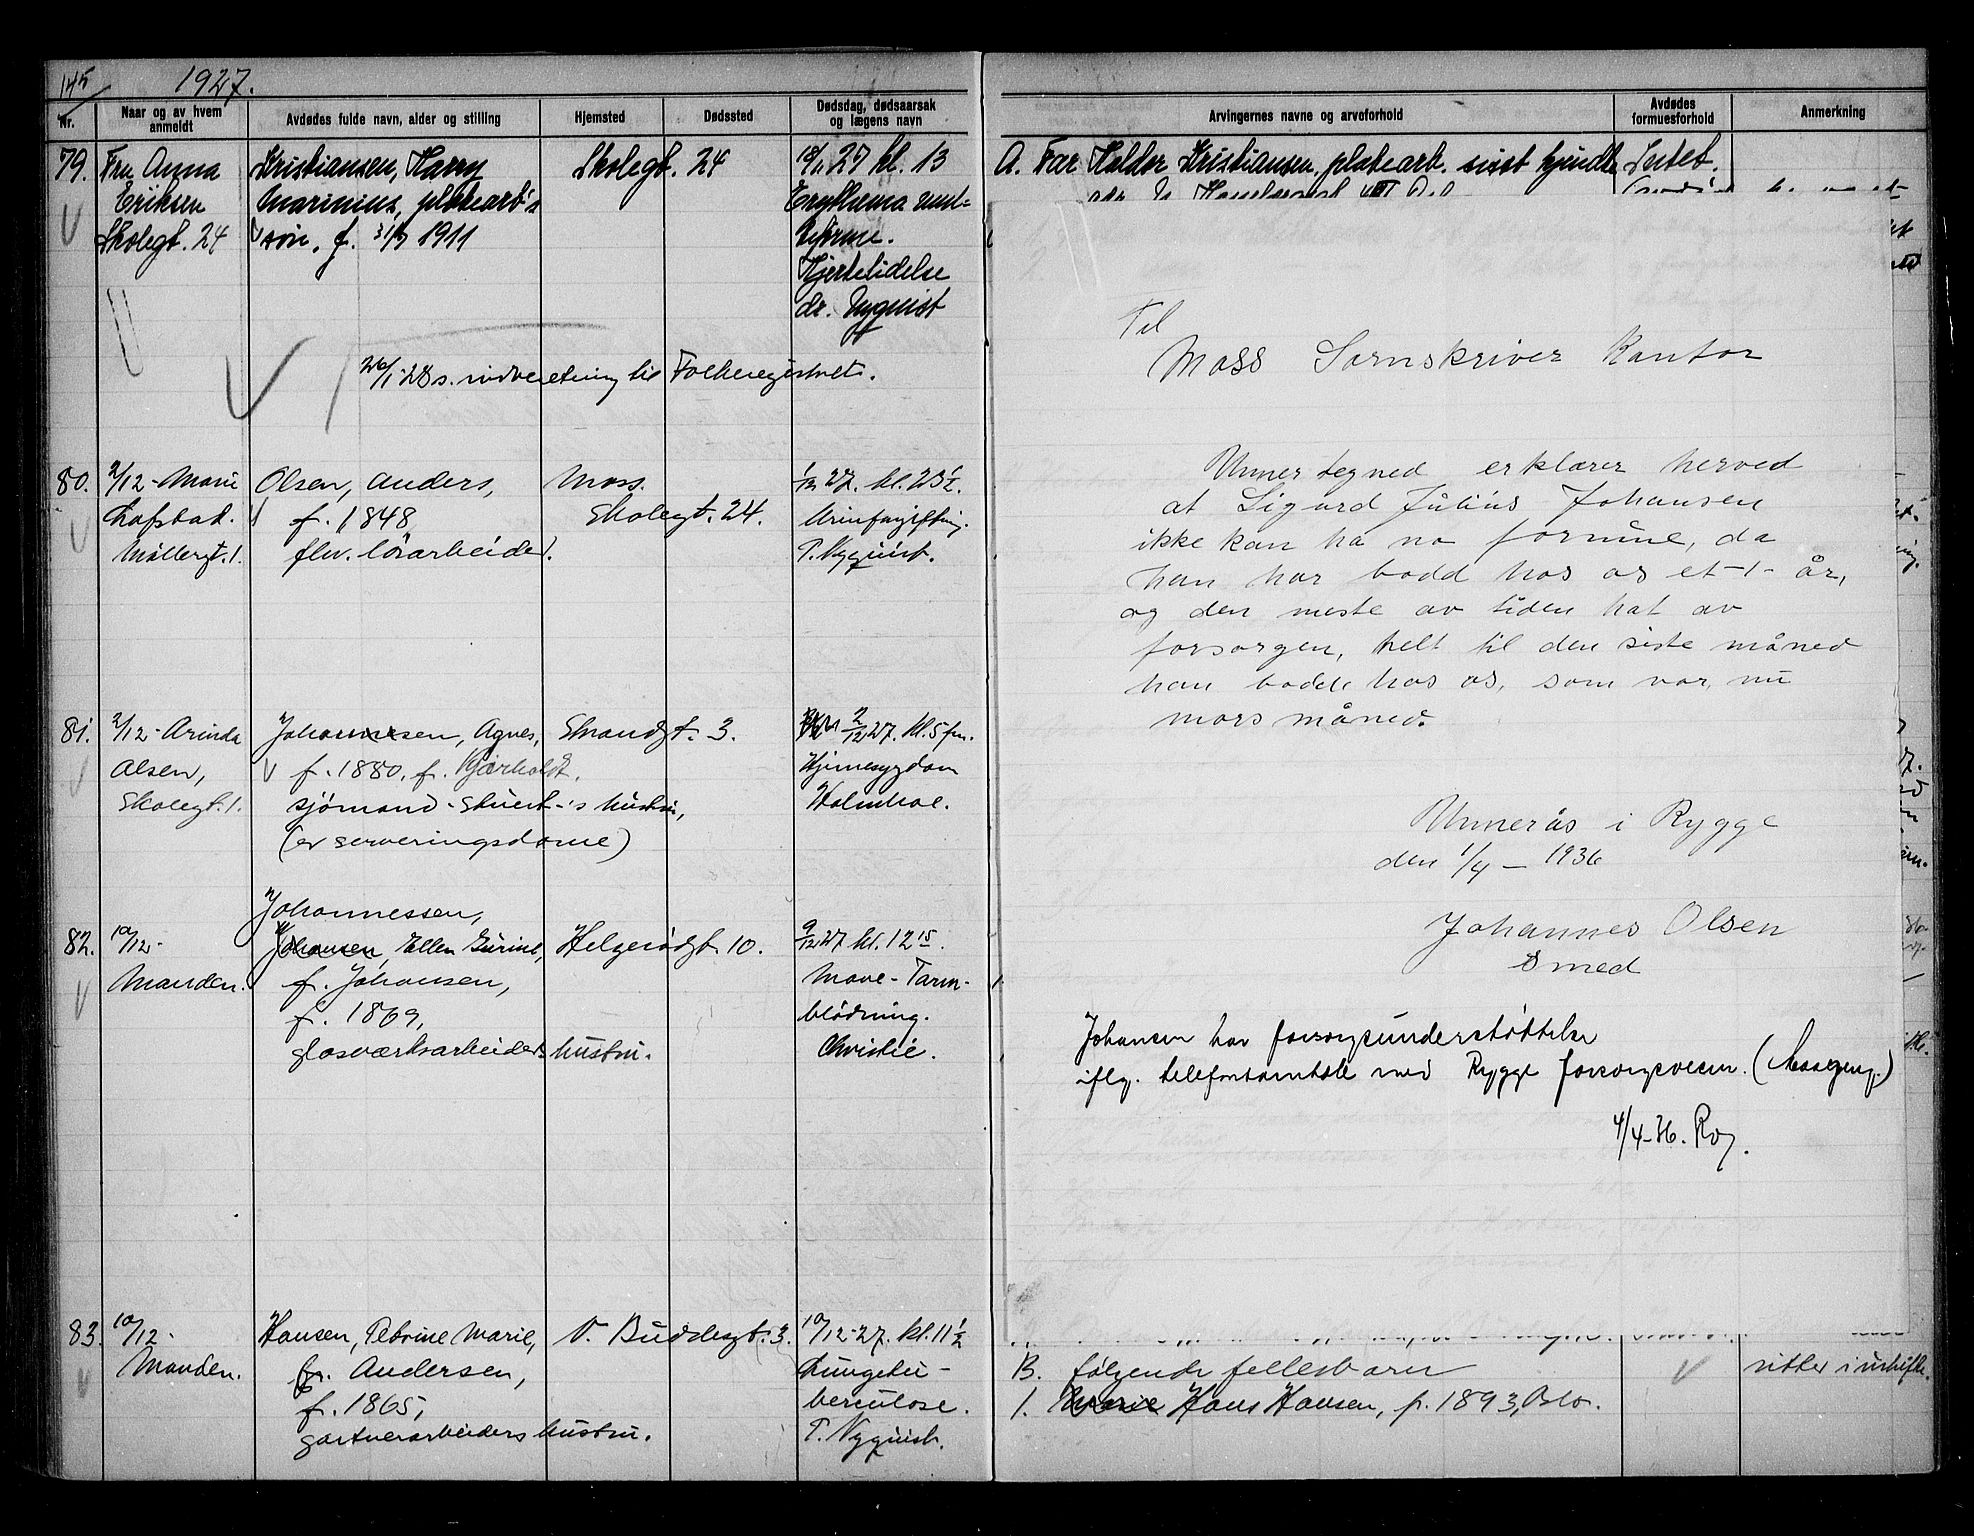 145
1927.
Nr.
Naar og av hvem
anmeldt
Avdødes fulde navn, alder og stilling
Hjemsted
Dødssted
Dødsdag, dødsaarsak
og lægens navn
79.
Fru Anna
Eriksen
Skolegt. 24
Kristiansen, Harry
Marinius, platearb's
søn, f. 1911
Skolegt. 24
27 kl. 13
Erythema mul-
tiforme.
Hjertelidelse
dr. Nyquist
28 s. indberetning til Folkeregistret.
80.
2/12 - Marie
Lofstad.
Møllergt. 1.
Olsen, Anders,
f. 1848,
flv. lörarbeider.
Moss.
Skolegt. 24.
1/12 27. kl. 23½.
Urinforgiftning.
T. Nyquist.
81.
2/12 - Arinda
Olsen,
Skolegt. 1.
Johannesen, Agnes,
f. 1880, f. Kjærholdt.
sjømand - stuert -'s hustru,
(ev serveringsdame)
Strandgt. 3.
2/12 27. kl. 5 fm.
Hjernesygdom
Holmboe.
82.
10/12 -
Manden.
Johannessen,
Johansen, Ellen Gurine,
f. Johansen,
f. 1869,
glasværksarbeiders hustru.
Helgerödgt. 10.
9/12 27 kl. 12 15.
Mave - Tarm-
blödning.
Christie.
83.
10/12 -
Manden.
Hansen, Petrine Marie,
f. Andersen,
f. 1865,
gartnerarbeiders hustru.
V. Buddesgt. 3.
10/12 - 27. kl. 11½
Lungetu-
berculose.
T. Nyquist.
Arvingernes navne og arveforhold
Avdødes
formuesforhold
Anmerkning
A. Far Haldor Kristiansen, platearb. sidst kjendte
Intet.
Til
Moss Sornskriver Kantor
Unner tegned erklærer herved
at Sigurd Julius Johansen
ikke kan ha no formue, da
han har bodd hos os et -1- år,
og den meste av tiden hat av
forsorgen, helt til den siste måned
han bodde hos os, som var, nu
mars måned.
Unnerås i Rygge
den 1/4 - 1936
Johannes Olsen
Smed
Johansen har forsorgsunderstøttelse
iflg. telefonsamtale med Rygge forsorgsvesen.
4/4 - 36.
B. følgende fellesbarn
1. Hans Hansen, f. 1893, Oslo.
sitter i uskifte.